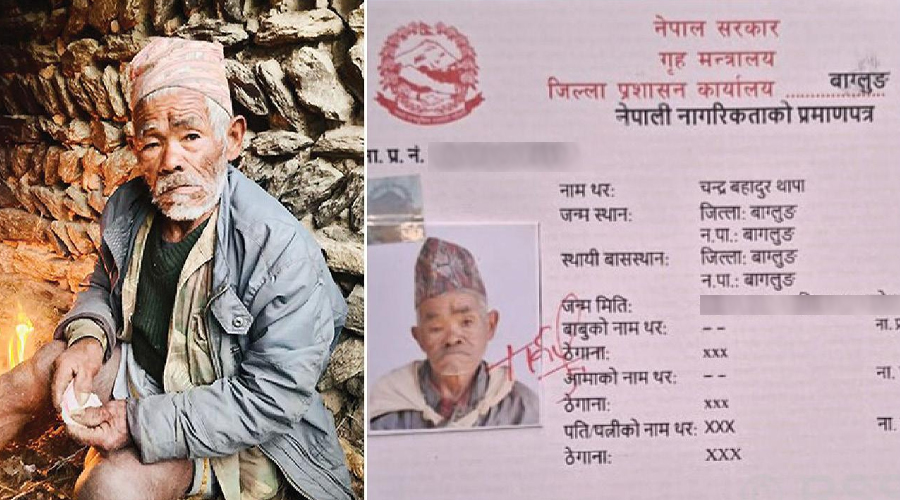 नेपाल सरकार
गृह मन्त्रालय
जिल्ला प्रशासन कार्यालय .................. बाग्लुङ
नेपाली नागरिकताको प्रमाणपत्र
ना. प्र. नं.
नाम थर: चन्द्र बहादुर थापा
जन्म स्थान: जिल्ला: बाग्लुङ
न.पा.: बागलुङ
स्थायी बासस्थान: जिल्ला: बाग्लुङ
न.पा.: बागलुङ
जन्म मिति:
बाबुको नाम थर: -- ना. प्र
ठेगाना: xxx
आमाको नाम थर: -- ना.
ठेगाना: xxx
पति/पत्नीको नाम थर: XXX ना.
ठेगाना: XXX